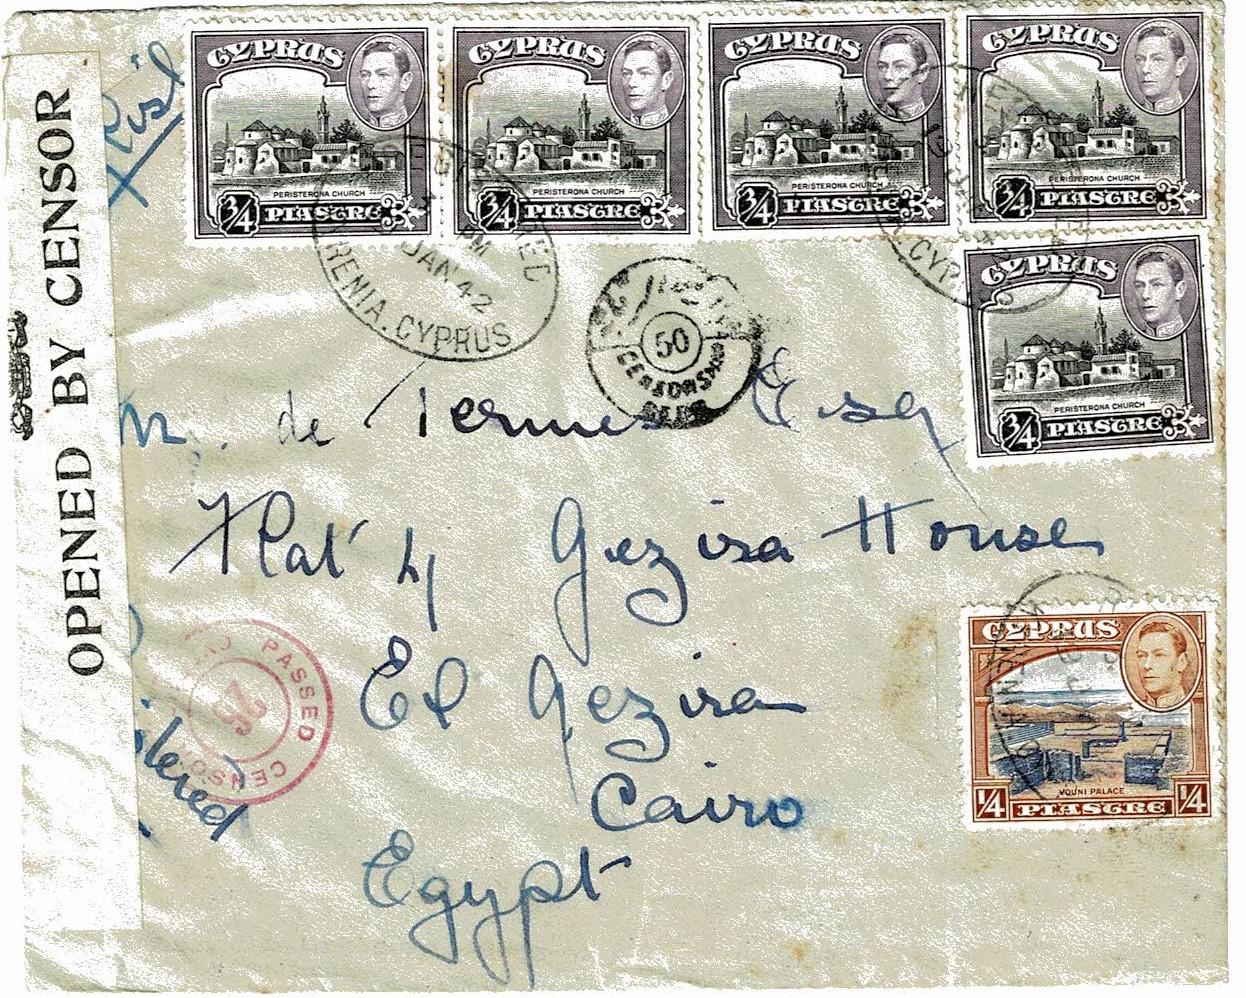 OPENED BY CENSOR
CYPRUS
PERISTERONA CHURCH
3/4 PIASTRE
CYPRUS
PERISTERONA CHURCH
3/4 PIASTRE
CYPRUS
PERISTERONA CHURCH
3/4 PIASTRE
CYPRUS
PERISTERONA CHURCH
3/4 PIASTRE
CYPRUS
PERISTERONA CHURCH
3/4 PIASTRE
PM
JAN 42
RENIA. CYPRUS
CYPRUS
50
M. de Termes Esq
Flat 4 Gezira House
El Gezira
Cairo
Egypt
PASSED CENSOR
CYPRUS
VOUNI PALACE
1/4 PIASTRE 1/4